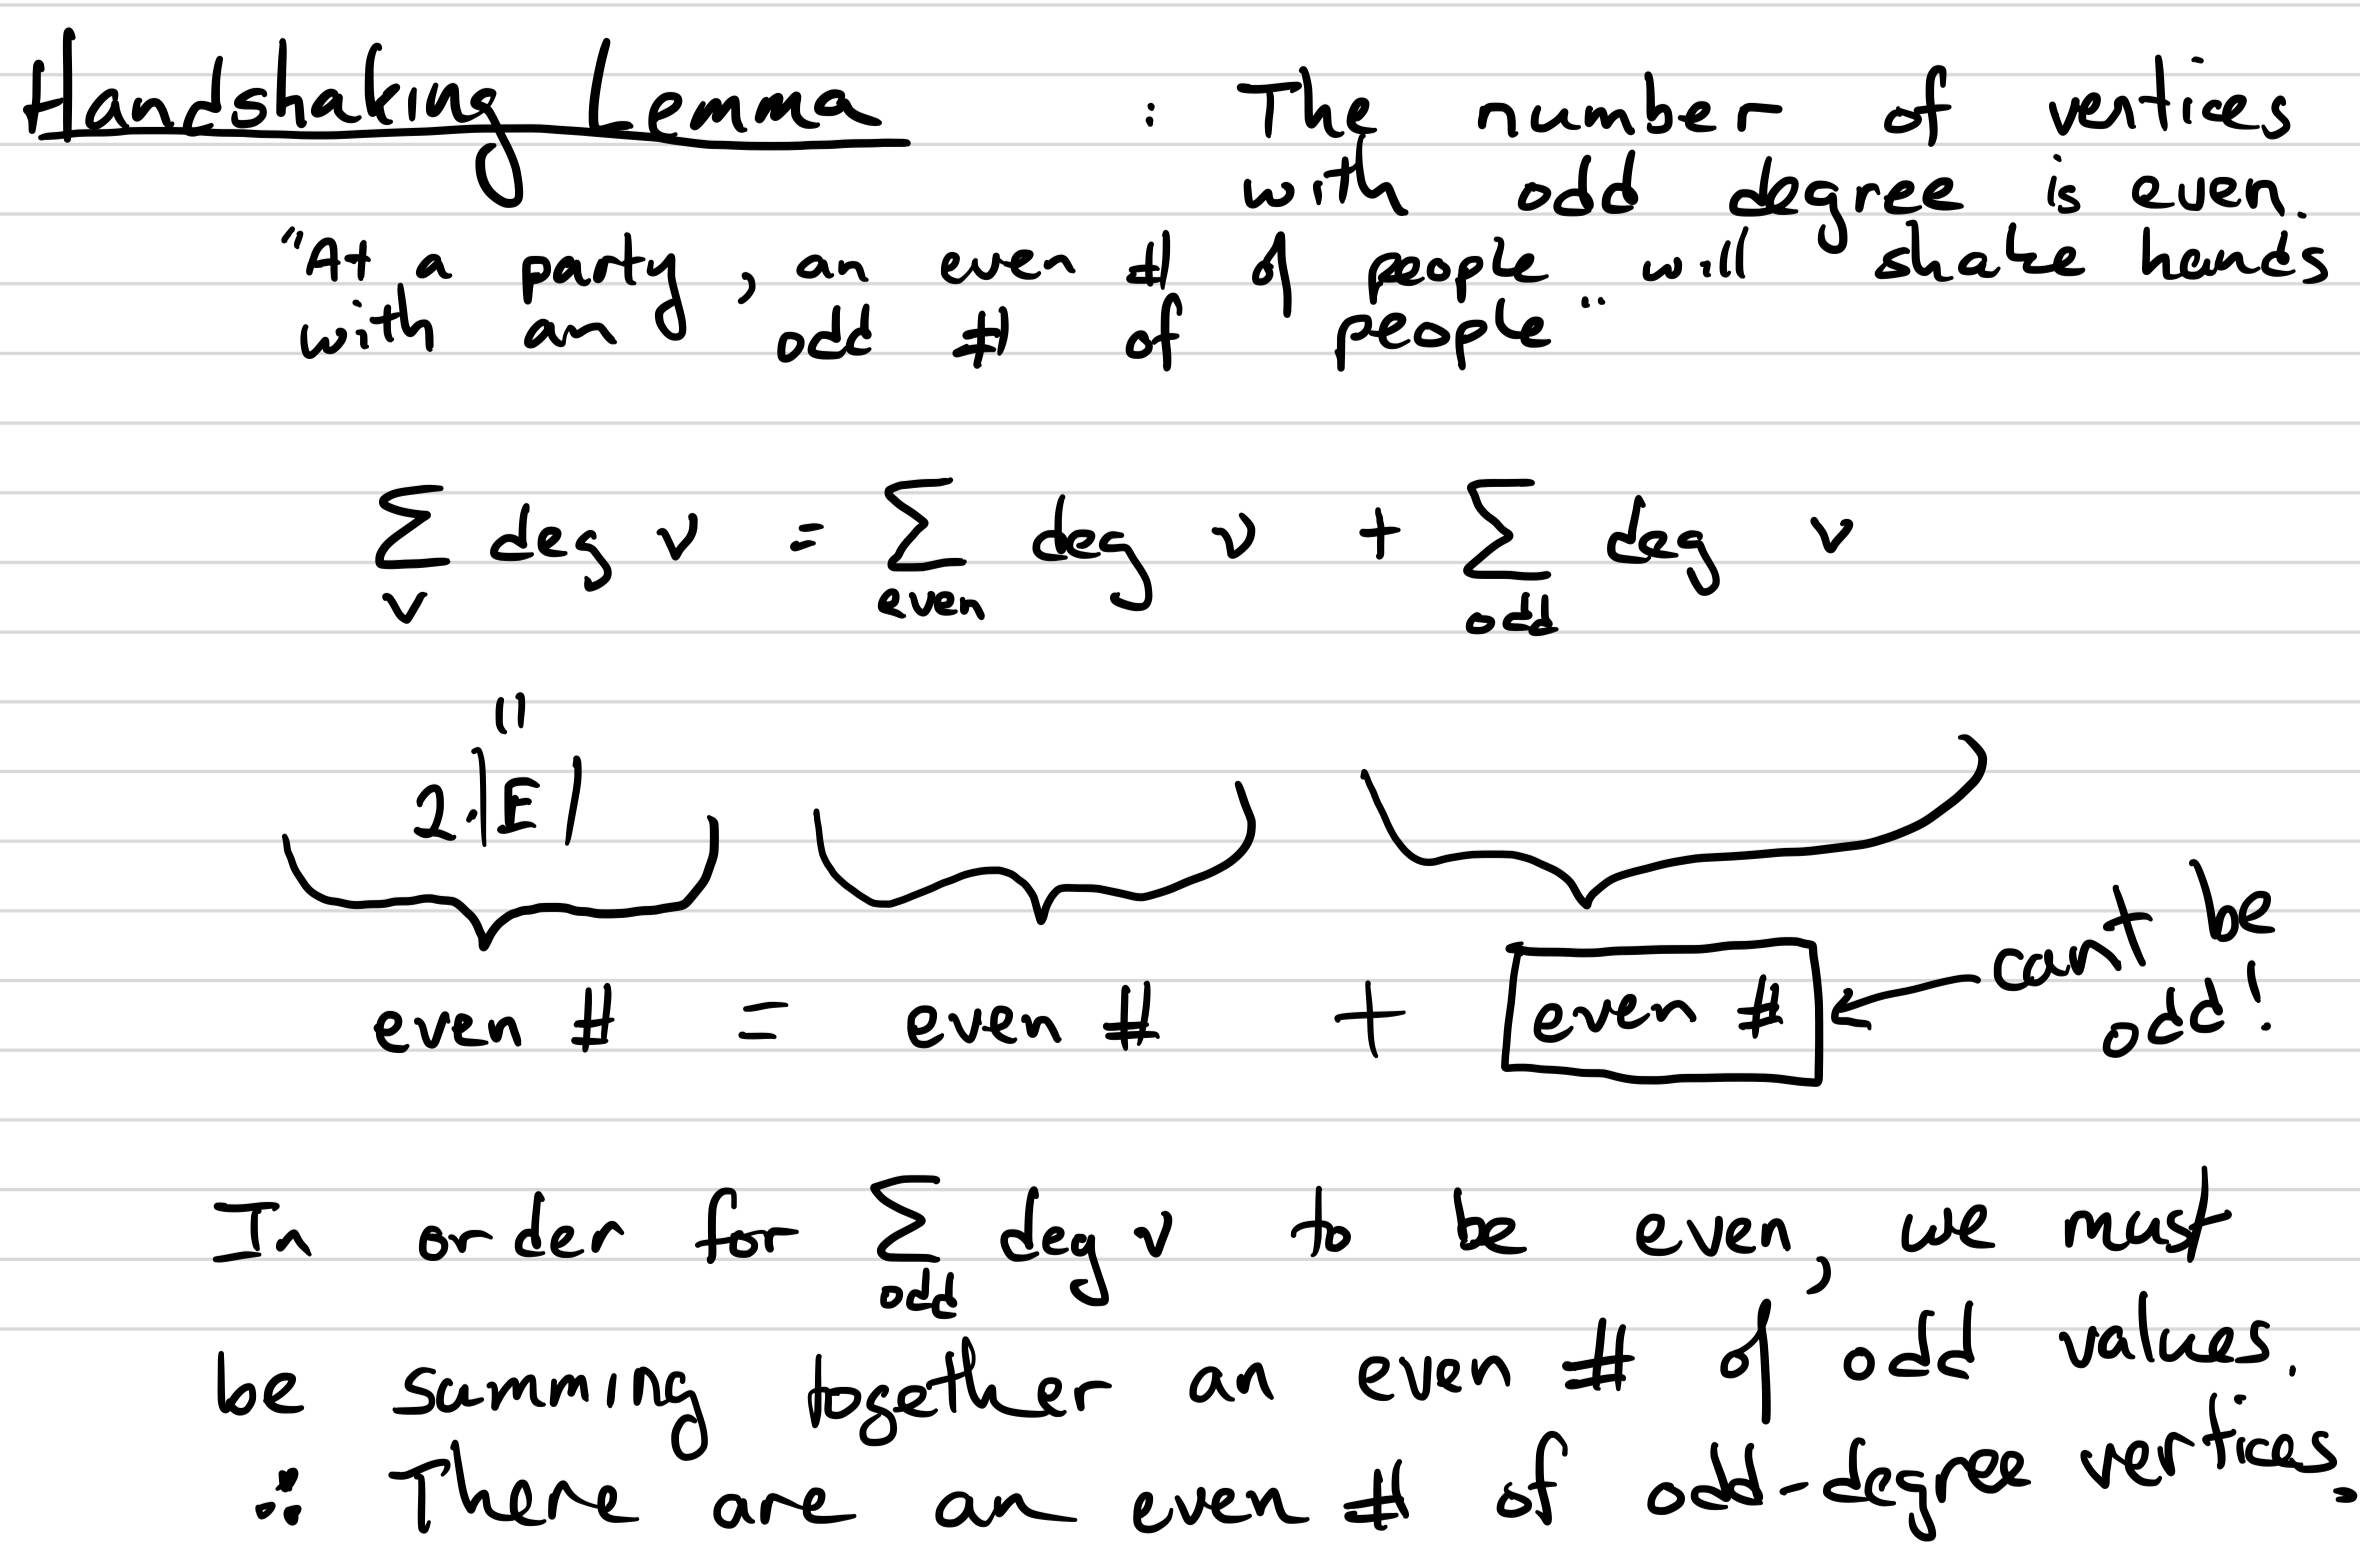 Handshaking Lemma : The number of vertices
with odd degree is even.
"At a party, an even # of people will shake hands
with an odd # of people"
∑ deg v = ∑ deg v + ∑ deg v
v even odd
"
2·|E|
even # = even # + even # can't be
odd!
In order for ∑ deg v to be even, we must
odd
be summing together an even # of odd values.
∴ There are an even # of odd-degree vertices.